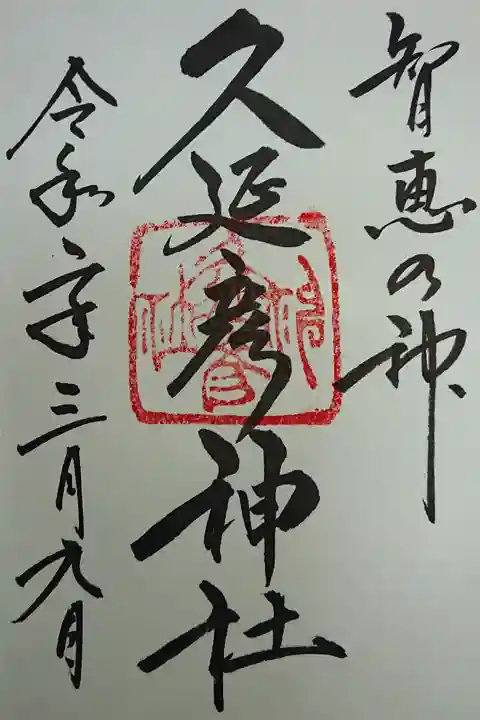 智恵の神
久延彦神社
令和 年三月九日